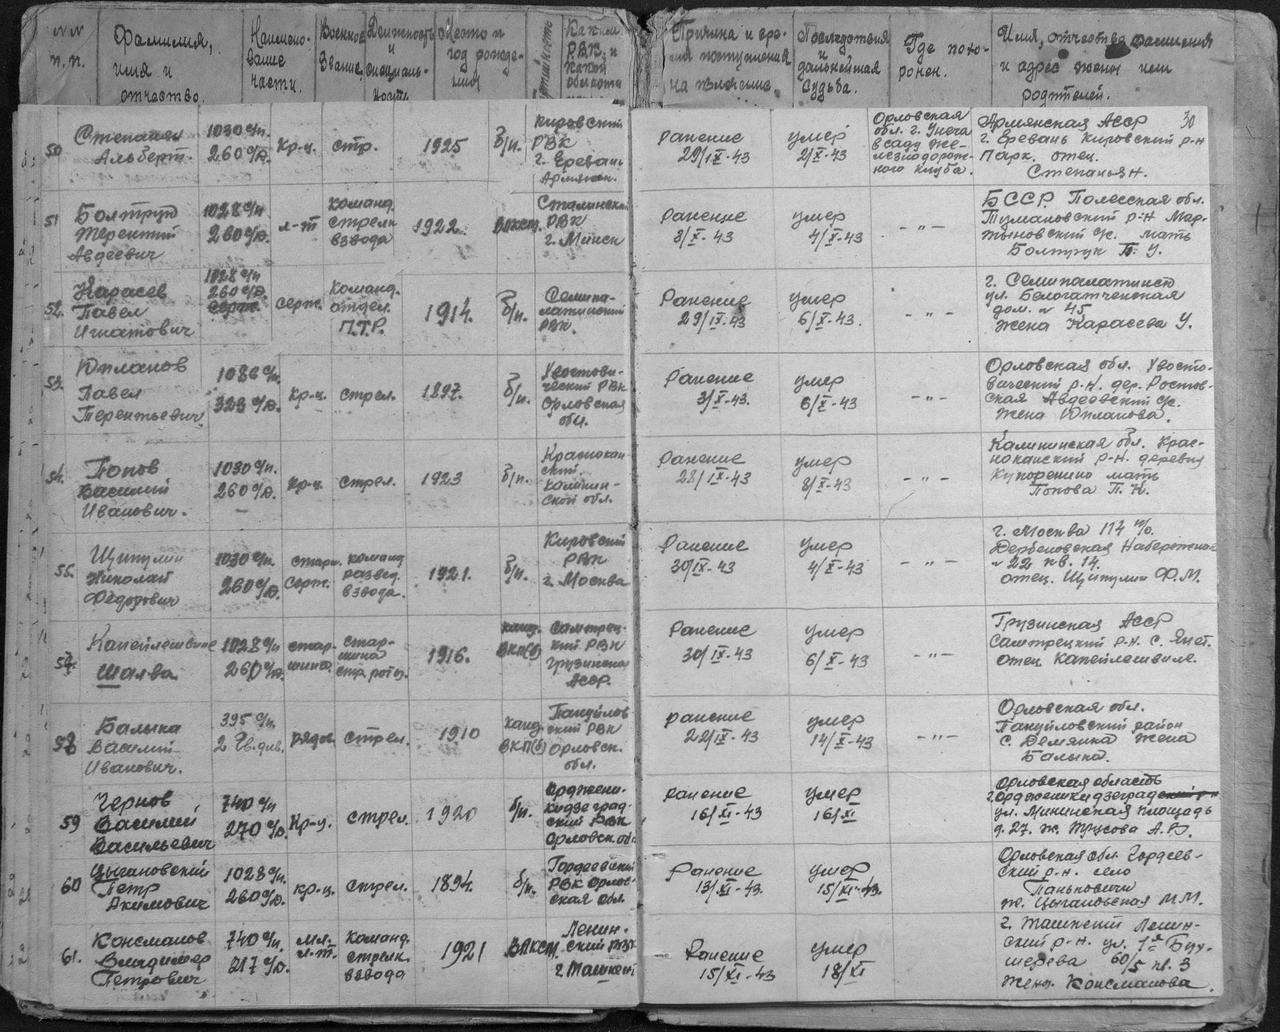 №№ п.п.
Фамилия, имя и отчество.
Наименование части.
Военное звание
Должность и специальность
Место и год рождения
Партийность
Каким РВК и какой области
Причина и время поступления на излечение
Последствия и дальнейшая судьба.
Где похоронен.
Имя, отчество фамилия и адрес жены или родителей.
30
50
Степанян Альберт.
1030 с/п. 260 с/д.
Кр-ц.
стр.
1925
б/п.
Кировский РВК г. Еревань Армянск.
Ранение 29/IX-43
умер 2/X-43
Орловская обл. г. Унеча в саду железнодорожного клуба.
Армянская АССР г. Еревань Кировский р-н Парк. отец. Степаньян.
51
Болтрук Терентий Авдеевич
1028 с/п 260 с/д.
л-т
команд. стрелк взвода
1922.
ВЛКСМ.
Сталинский РВК г. Минск
Ранение 3/X-43
умер 4/X-43
-"-
БССР Полесская обл. Тумановский р-н Мартыновский с/с. мать Болтрук П. У.
52.
Карасев Павел Игнатович
1028 с/п 260 с/д.
Серж.
команд. отдел. П.Т.Р.
1914.
б/п.
Семипалатинский РВК.
Ранение 29/IX-43
умер 6/X-43.
-"-
г. Семипалатинск ул. Белогатченская дом. № 45 жена Карасева У.
53.
Юпланов Павел Терентьевич
1086 с/п. 323 с/д.
Кр-ц.
стрел.
1897.
б/п.
Хвостовический РВК Орловская обл.
Ранение 3/X-43.
умер 6/X-43
-"-
Орловская обл. Хвостовический р-н. дер. Ростовская Авдеевский с/с. жена Юпланова.
54.
Попов Василий Иванович.
1030 с/п. 260 с/д.
Кр-ц.
стрел.
1923
б/п.
Краснохолмский. Калининской обл.
Ранение 28/IX-43
умер 8/X-43
-"-
Калининская обл. р-н. деревня мать Попова П. К.
55.
Щипулин Николай Федорович
1030 с/п 260 с/д.
старш. Серж.
команд развед. взвода.
1921.
б/п.
Кировский РВК г. Москва
Ранение 30/IX-43
умер 4/X-43
-"-
г. Москва 114 п/о. Дербеновская Набережная № 22 кв. 14. отец. Щипулин Ф.М.
57.
Капейлешвили Шалва.
1028 с/п 260 с/д.
старшина
старшина стр. роты.
1916.
канд. ВКП(б)
Самтредский РВК Грузинская АССР.
Ранение 30/IX-43
умер 6/X-43
-"-
Грузинская АССР Самтрецкий р-н. с. Янет. отец Капейлешвиле.
58
Балыка Василий Иванович.
395 с/п. 2 Гв. див.
рядов.
стрел.
1910
канд. ВКП(б)
РВК Орловск. обл.
Ранение 22/IX-43
умер 14/X-43
-"-
Орловская обл. район с. Демянка жена Балыка.
59
Чернов Василий Васильевич
740 с/п 270 с/д.
Кр-ц.
стрел.
1920
б/п.
Орджоникидзеградский РВК Орловск. обл
Ранение 16/XI-43
умер 16/XI
Орловская область г. Орджоникидзеград ул. Мининская площадь д. 27. ж. Трусова А.В.
60
Цыгановский Петр Акимович
1028 с/п. 260 с/д.
кр-ц.
стрел.
1894.
б/п.
Гордеевский РВК Орловская обл.
Ранение 13/XI-43.
умер 15/XI-43.
Орловская обл. Гордеевский р-н. село Паньковичи ж. Цыгановская М.М.
61.
Консманов Владимир Петрович
740 с/п. 217 с/д.
мл. л-т
команд. стрелк. взвода
1921
ВЛКСМ.
Ленинский РВК г. Ташкент
Ранение 15/XI-43
умер 18/XI
г. Ташкент Ленинский р-н. ул. 60/5 кв. 3 жена Консманова.